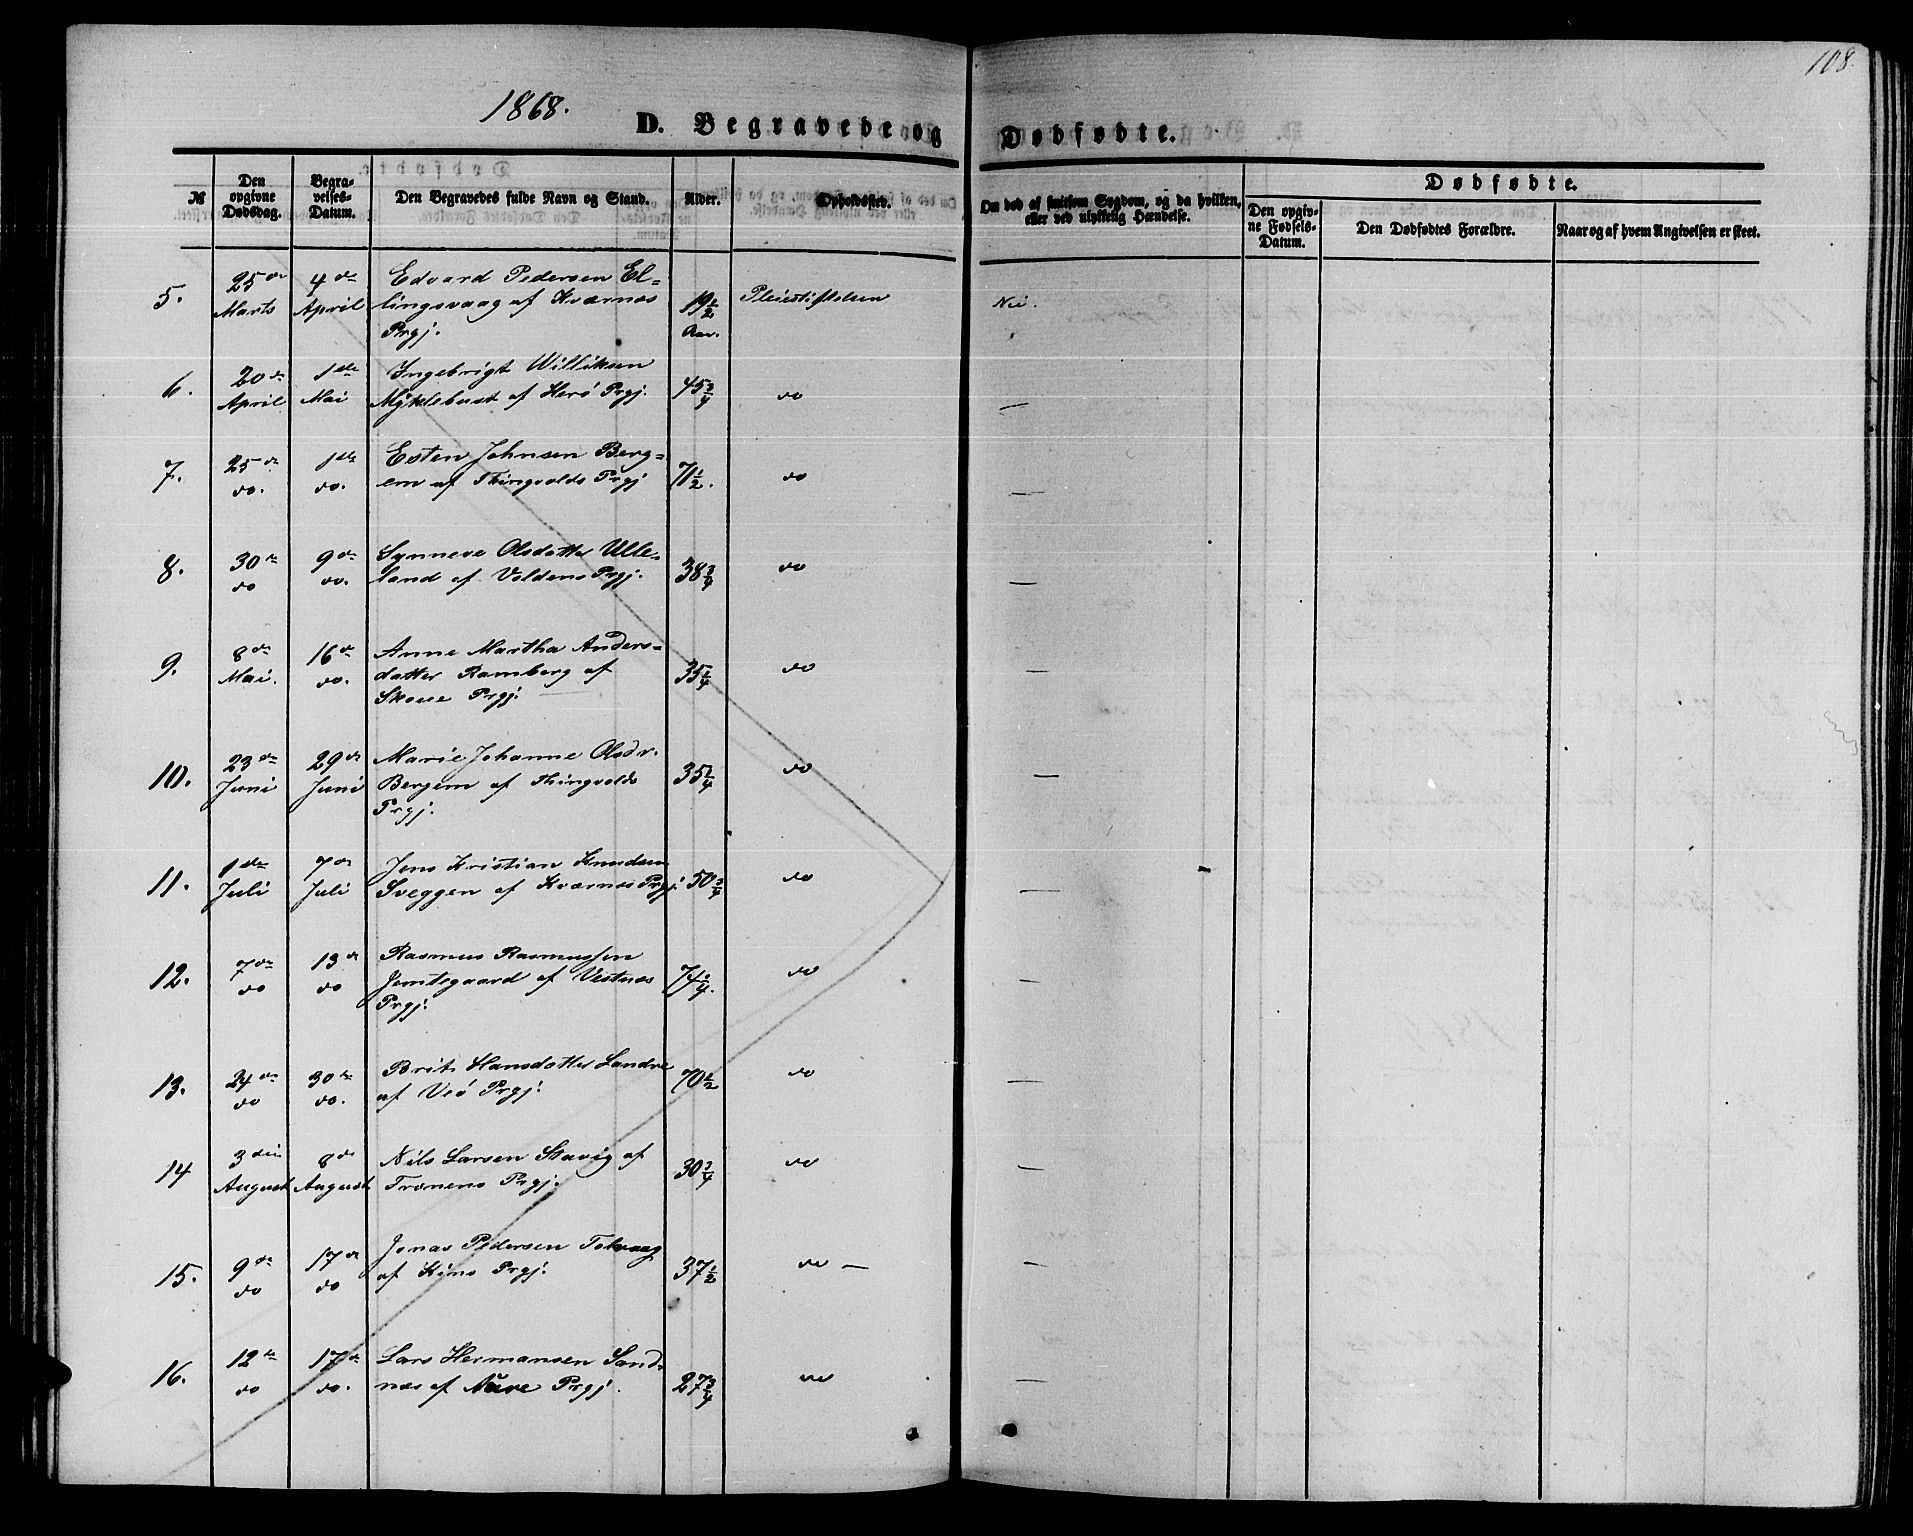 108.
1868.
D. Begravede og Dødfødte.
№
Den opgivne Dødsdag.
Begravelses-Datum.
Den Begravedes fulde Navn og Stand.
Alder.
Opholdssted.
Om død af smitsom Sygdom, og da hvilken, eller ved ulykkelig Hændelse.
Dødfødte.
Den opgivne Fødsels-Datum.
Den Dødfødtes Forældre.
Naar og af hvem Angivelsen er skeet.
5. 25de Marts 4de April Edvard Pedersen El-
lingsvaag af Kværnes 19½ Pleiestiftelsen Nei.
Prgj. Aar.
6. 20de April 1ste Mai Ingebrigt Williksen
Myklebust af Herø Prgj. 45¾ do —
7. 25de do. 1ste do. Esten Johnsen Berg-
em af Thingvolds Prgj 71½. do —
8. 30te do 9de do. Synneve Olsdatter Ulle-
land af Voldens Prgj. 38¾ do —
9. 8de Mai. 16de do. Anne Martha Anders-
datter Ramberg af 35¼ do —
Skoue Prgj.
10. 23de Juni 29de Juni Marie Johanne Olsdr.
Bergem af Thingvolds 35¼ do —
Prgj.
11. 1ste Juli 7de Juli Jens Kristian Knudsen
Sveggen af Kværnes Prgj. 50¾ do —
12. 7de do 13de do Rasmus Rasmussen
Jemtegaard af Vestnæs 74¼. do —
Prgj.
13. 24de do 30te do. Brit Hansdatter Sandve
af Veø Prgj. 70½ do —
14 3die August 8de August Nils Larsen Stavig af
Fronens Prgj. 30¾ do —
15. 9de do 17de do Jonas Pedersen Tokvaag
af Prgj. 37½ do — —
16. 12te do 17de do. Lars Hermansen Sand-
næs af Aure Prgj. 27¾ do —